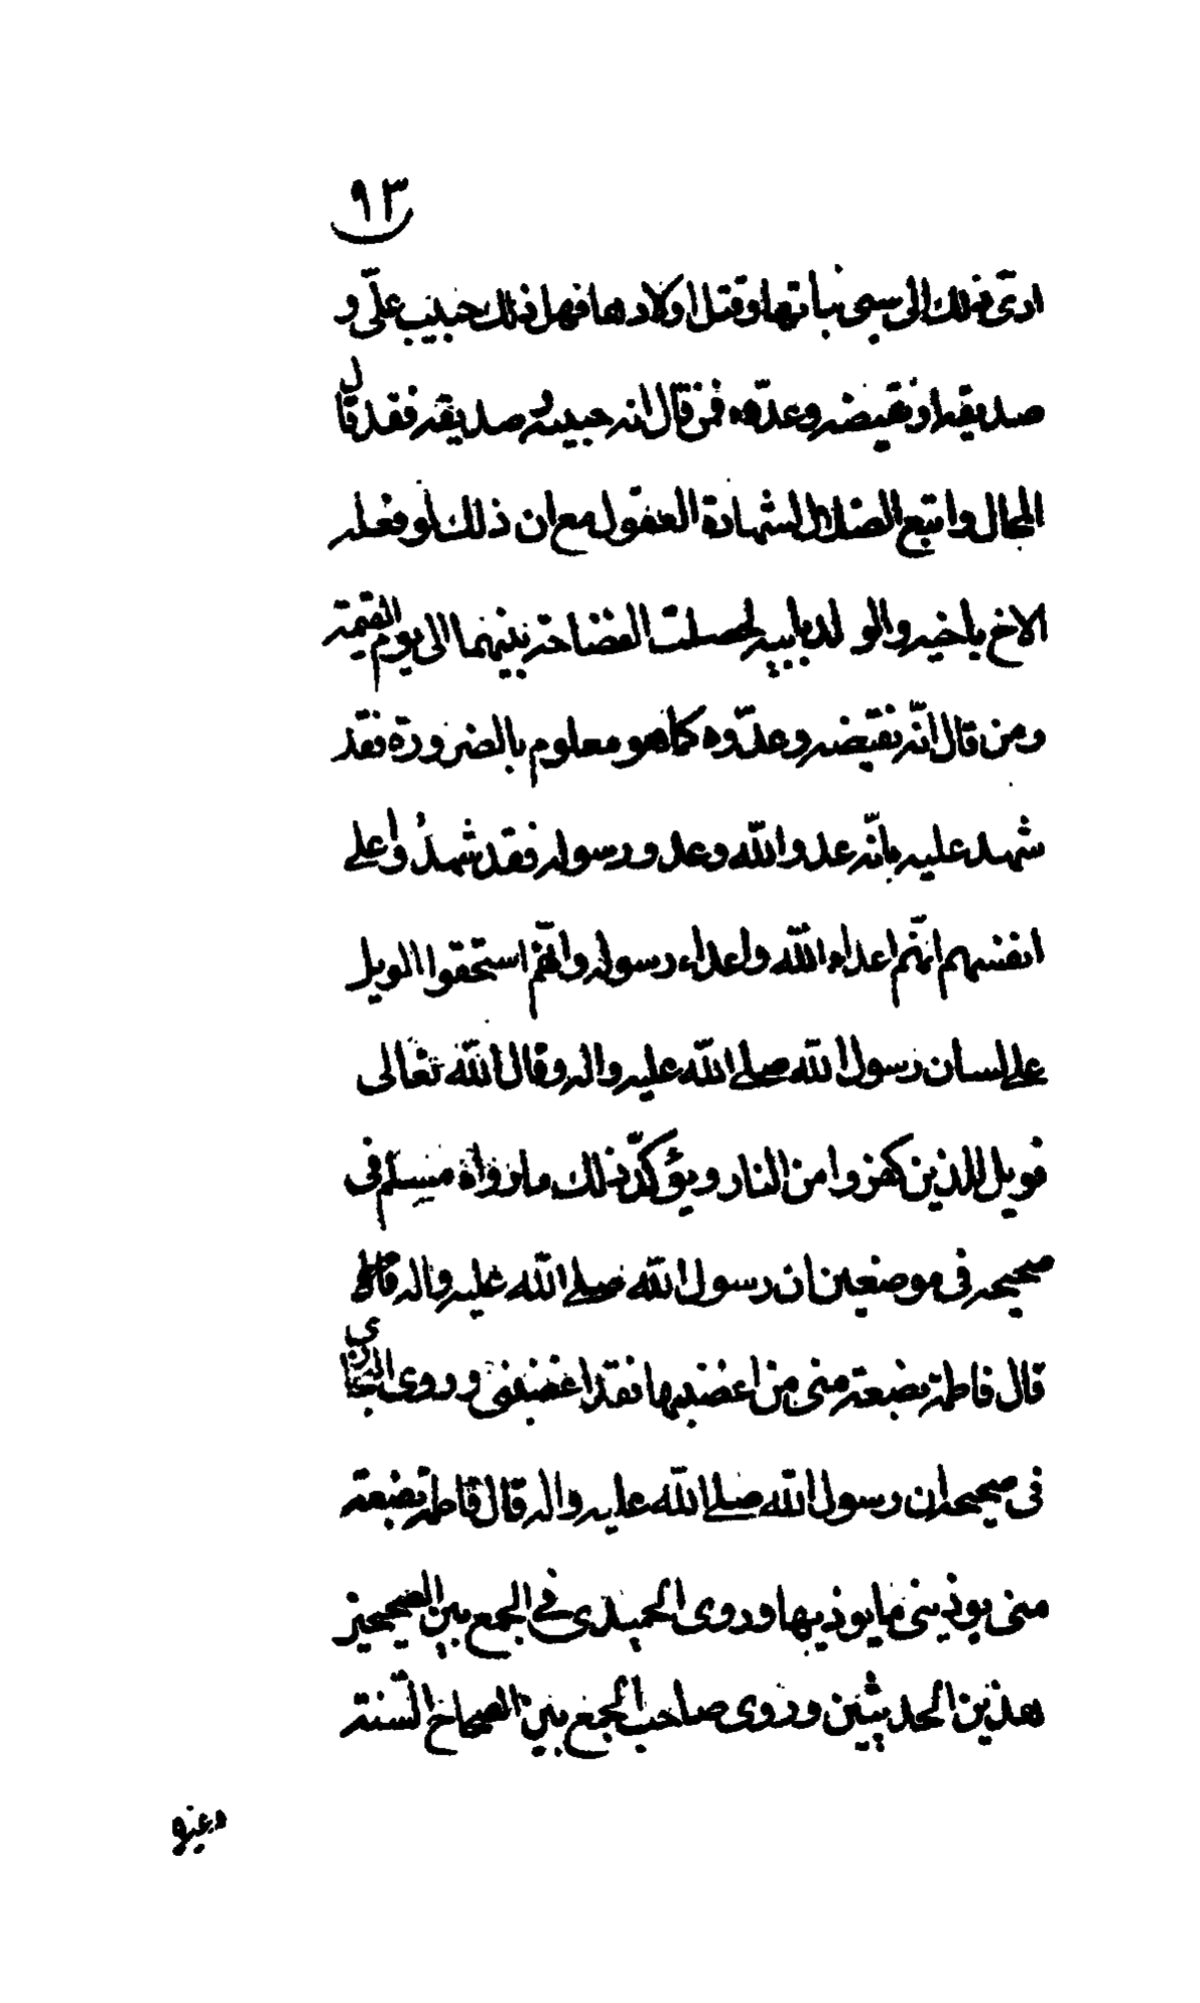 ٩٣
ادى ذلك الى سبى بناتها وقتل اولادها فهل ذلك حبيب على و
صديقه او نقيضه وعدوه فمن قال انه حبيبه وصديقه فقد قال
المحال واتبع الضلال لشهادة العقول مع ان ذلك لو فعله
الاخ باخيه والولد بابيه لحصلت الفضاحة بينهما الى يوم القيمة
ومن قال انّه نقيضه وعدّوه كما هو معلوم بالضرورة فقد
شهد عليه بانّه عدو الله وعدو رسوله فقد شهدوا على
انفسهم انّهم اعداء الله واعداء رسوله وانّهم استحقوا الويل
على لسان رسول الله صلى الله عليه واله وقال الله تعالى
فويل للذين كفروا من النار ويؤكّد ذلك ما رواه مسلم فى
صحيحه فى موضعين ان رسول الله صلى الله عليه واله
قال فاطمة بضعة منى من اغضبها فقد اغضبنى وروى البخارى
فى صحيحه ان رسول الله صلى الله عليه واله قال فاطمة بضعة
منى يوذينى ما يوذيها وروى الحميدى فى الجمع بين الصحيحين
هذين الحديثين وروى صاحب الجمع بين الصحاح الستة
وغيره